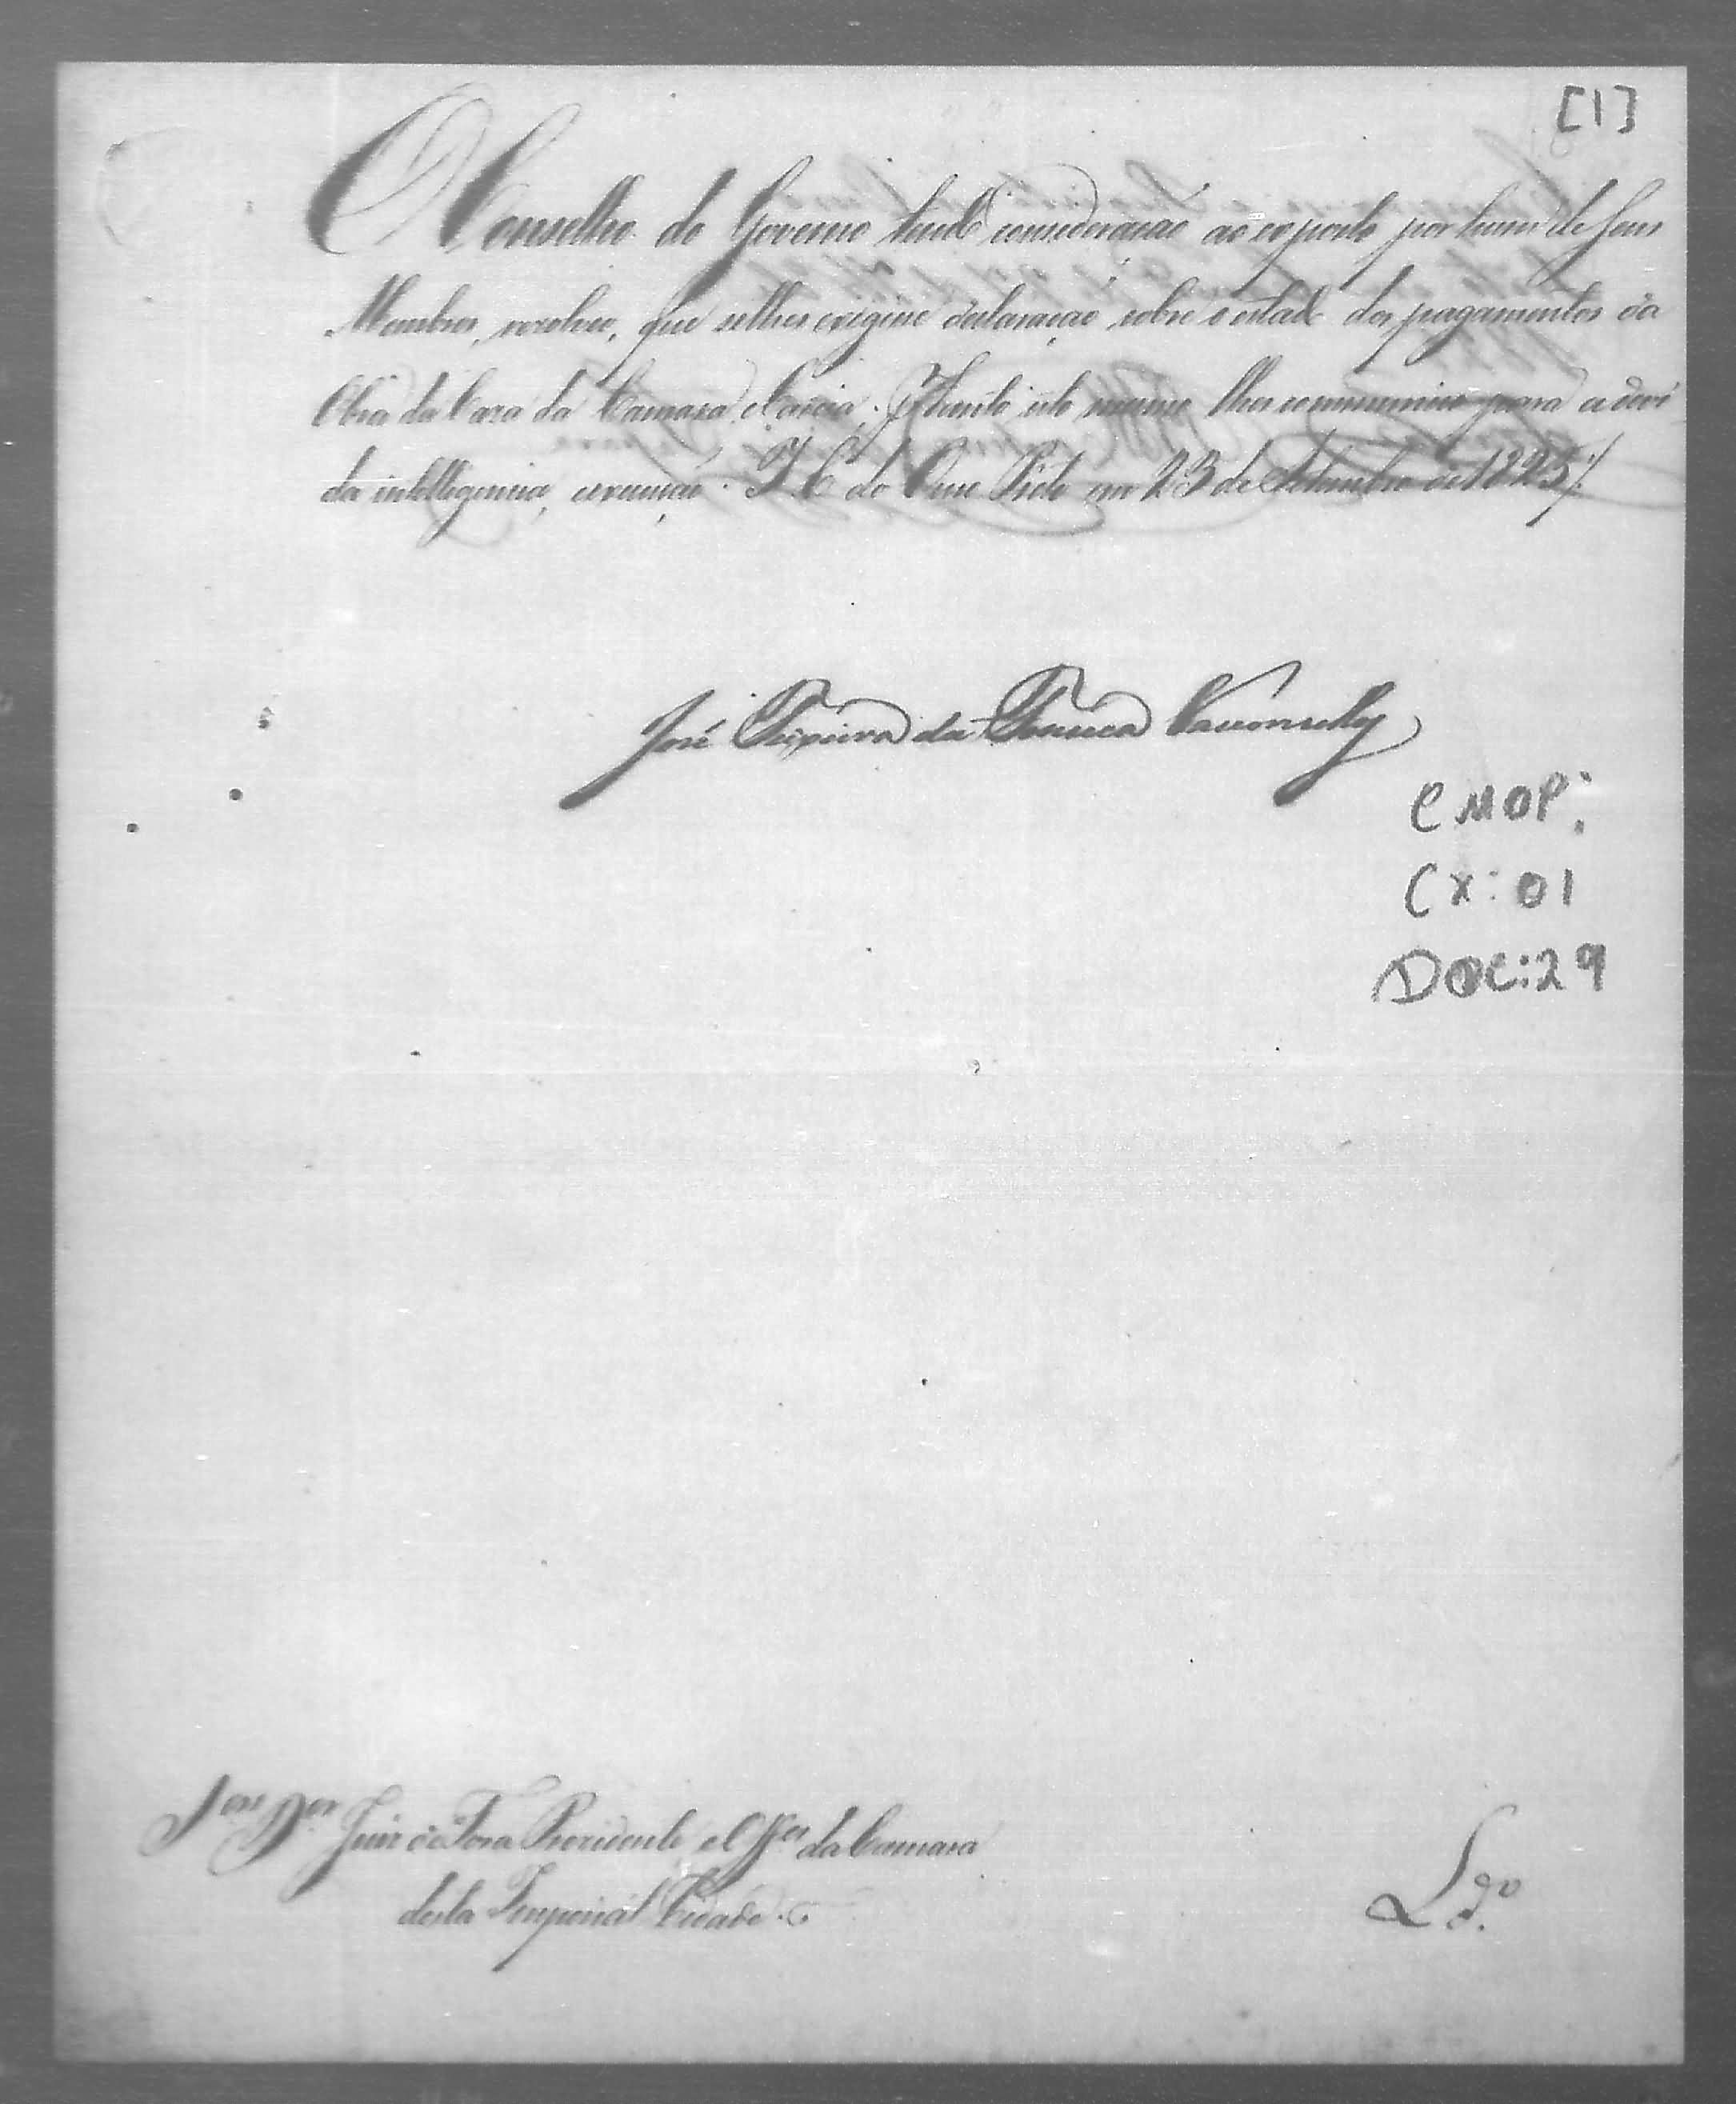 [1]
O Conselho do Governo tendo consideração ao exposto por hum de Seus
Membros, resolveo, que selhes exigisse declaração sobre o estado dos pagamentos da
Obra da Casa da Camara, eCadeia. Portanto isto mesmo lhes communico para a devi
da intelligencia, eexecução. I. C. do Ouro Preto em 23 de Setembro de 1825
José Teixeira da Fonseca Vasconcellos
CMOP:
CX: 01
DOC: 29
Snr. Dor. Juiz deFora Presidente, e Offes. da Camara
desta Imperial Cidade.
Ldo.